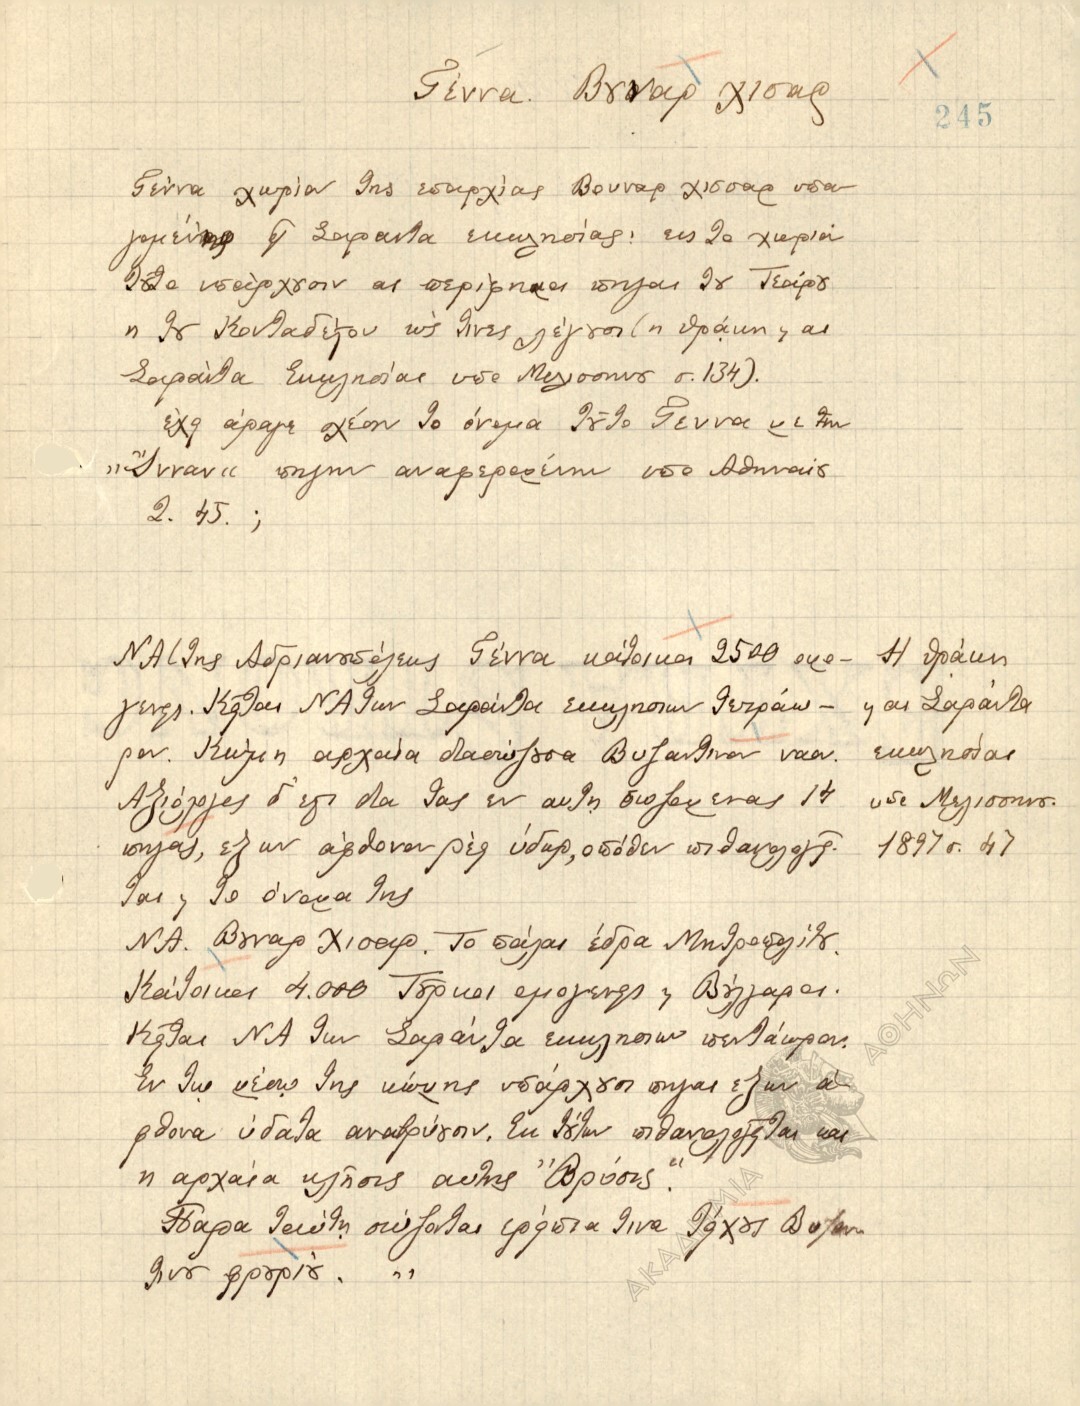 Γέννα. Βουναρ χισαρ
245
Γέννα χωρίον της επαρχίας Βουναρ χισσαρ υπα-
Σαραντα εκκλησίας: εις το χωρίον
τούτο υπάρχουσιν αι περίφημοι πηγαι του Τεάρου
η του Κονταδέσδου ως τινες λέγουσι (η Θράκη κ αι
Σαράντα Εκκλησίαι υπο Μελισσηνου σ. 134).
έχει άραγε σχέσιν το όνομα τούτο Γεννα με την
„Ίνναν“ πηγην αναφερομένην υπο Αθηναίου
2. 45. ;
ΝΑ (της Αδριανουπόλεως Γέννα κάτοικοι 2500 ομο-
γενεις. Κείται ΝΑ των Σαράντα εκκλησιων τετράω-
ρον. Κώμη αρχαία διασώζουσα Βυζαντινον ναον.
Αξιόλογος δ' έτι δια τας εν αυτη σωζομενας 14
πηγας, εξ ων άφθονον ρέει ύδωρ, οπόθεν πιθανολογεί-
ται κ το όνομα της
Η Θράκη
κ αι Σαράντα
εκκλησίαι
υπο Μελισσηνου.
1897 σ. 47
ΝΑ. Βουναρ Χισαρ. Το πάλαι έδρα Μητροπολίτου.
Κάτοικοι 4.000 Τούρκοι ομογενεις κ Βούλγαροι.
Κείται ΝΑ των Σαράντα εκκλησιων πεντάωρον.
Εν τω μέσω της κώμης υπάρχουσι πηγαι εξ ων ά-
φθονα ύδατα αναβρύουσιν. Εκ τούτων πιθανολογείται και
η αρχαία κλήσις αυτης "Βρύσις".
Παρα ταύτη σώζονται ερείπια τινα τείχους Βυζαν
τινου φρουρίου. "
ΑΚΑΔΗΜΙΑ ΑΘΗΝΩΝ